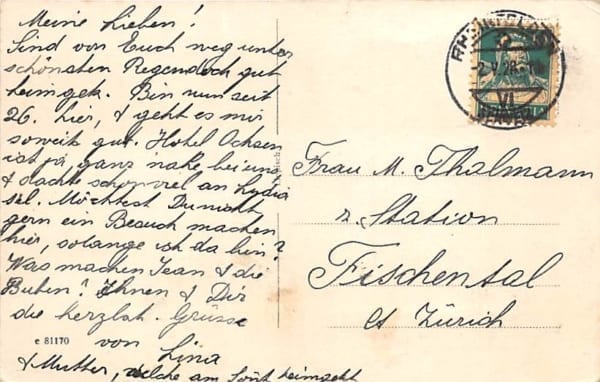 Meine Lieben!
Sind von Euch weg unter
schönsten Regen doch gut
heimgek. Bin nun seit
26. hier, & geht es mir
soweit gut. Hotel Ochsen
ist ja, ganz nahe bei uns
& dachte schon viel an Lydia
sel. Möchtest Du nicht
gern ein Besuch machen
hier, solange ich da bin?
Was machen Jean & die
Buben? Ihnen & Dir
die herzlch. Grüsse
von Lina
& Mutter, welche am Sont heimgeht
e 81170
VI
Frau M. Thalmann
z. Station
Fischental
Ct Zürich